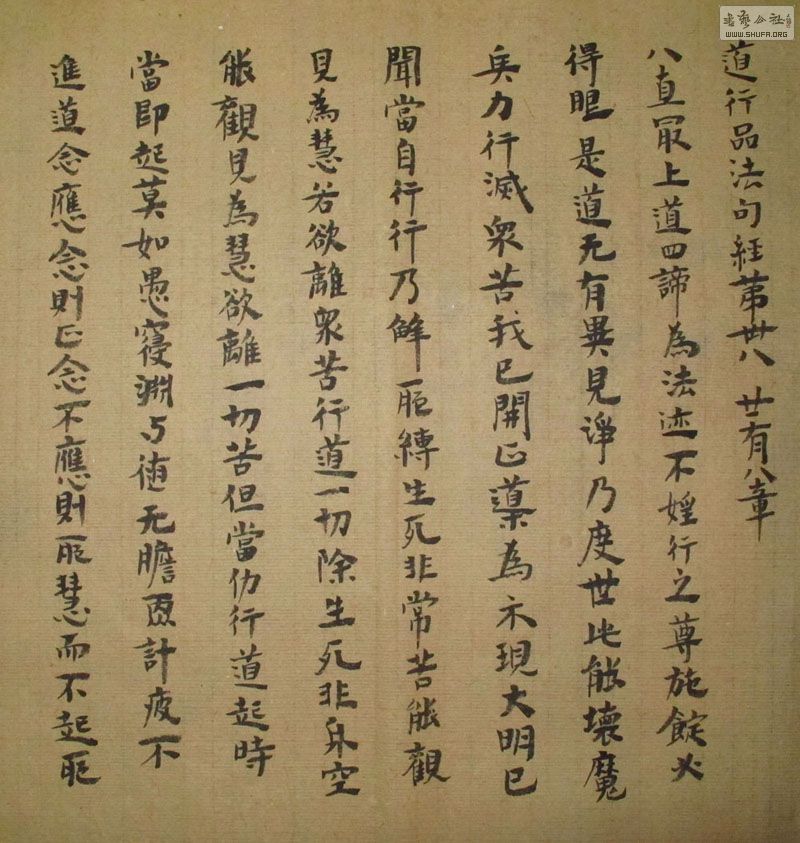 道行品法句經第卅八 廿有八章
八直冣上道四諦為法迹不婬行之尊施錠必
得眼是道无有異見淨乃度世此能壞魔
兵力行滅衆苦我已開正道為示現大明已
聞當自行行乃解耶縛生死非常苦能觀
見為慧若欲離衆苦行道一切除生死非身空
能觀見為慧欲離一切苦但當仂行道起時
當即起莫如愚寑淵与墮无瞻聚計疲不
進道念應念則正念不應則耶慧而不起耶
書藝公社
WWW.SHUFA.ORG